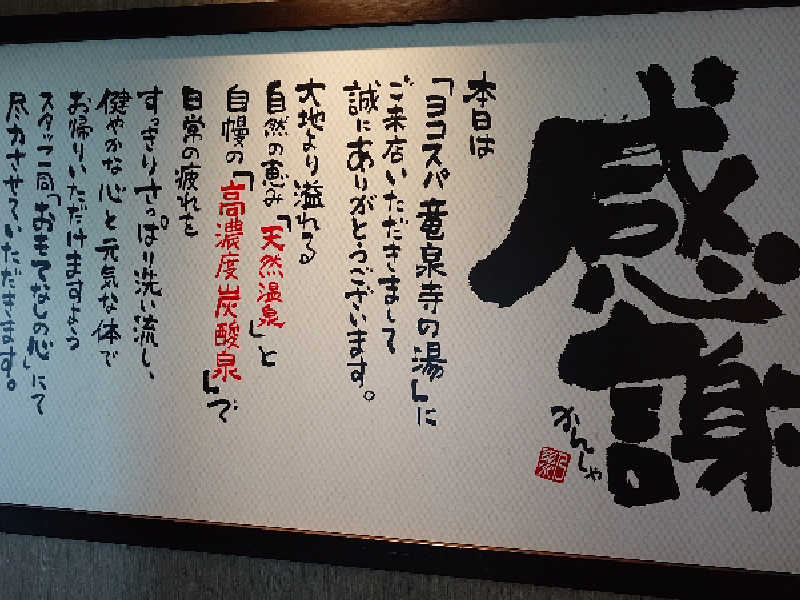 感謝
かんしゃ
本日は
「ヨコスパ竜泉寺の湯」に
ご来店いただきまして
誠にありがとうございます。
大地より溢れる
自然の恵み「天然温泉」と
自慢の「高濃度炭酸泉」で
日常の疲れを
すっきりさっぱり洗い流し、
健やかな心と元気な体で
お帰りいただけますよう
スタッフ一同「おもてなしの心」にて
尽力させていただきます。